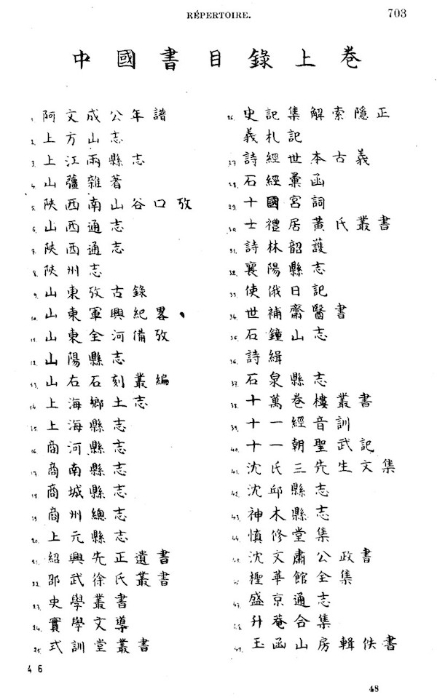 RÉPERTOIRE.
703
中國書目錄上巻
1. 阿文成公年譜
2. 上方山志
3. 上江兩縣志
4. 山疆雜著
5. 陝西南山谷口攷
6. 山西通志
7. 陝西通志
8. 陝州志
9. 山東攷古錄
10. 山東軍興紀畧
11. 山東全河備攷
12. 山陽縣志
13. 山右石刻叢編
14. 上海鄉土志
15. 上海縣志
16. 商河縣志
17. 商南縣志
18. 商城縣志
19. 商州總志
20. 上元縣志
21. 紹興先正遺書
22. 邵武徐氏叢書
23. 史學叢書
24. 實學文導
25. 式訓堂叢書
26. 史記集解索隱正
義札記
27. 詩經世本古義
28. 石經彙函
29. 十國宮詞
30. 士禮居黃氏叢書
31. 詩林韶護
32. 襄陽縣志
33. 使俄日記
34. 世補齋醫書
35. 石鐘山志
36. 詩緝
37. 石泉縣志
38. 十萬巻樓叢書
39. 十一經音訓
40. 十一朝聖武記
41. 沈氏三先生文集
42. 沈邱縣志
43. 神木縣志
44. 慎修堂集
45. 沈文肅公政書
46. 華館全集
47. 盛京通志
48. 升菴合集
49. 玉函山房輯佚書
46
48